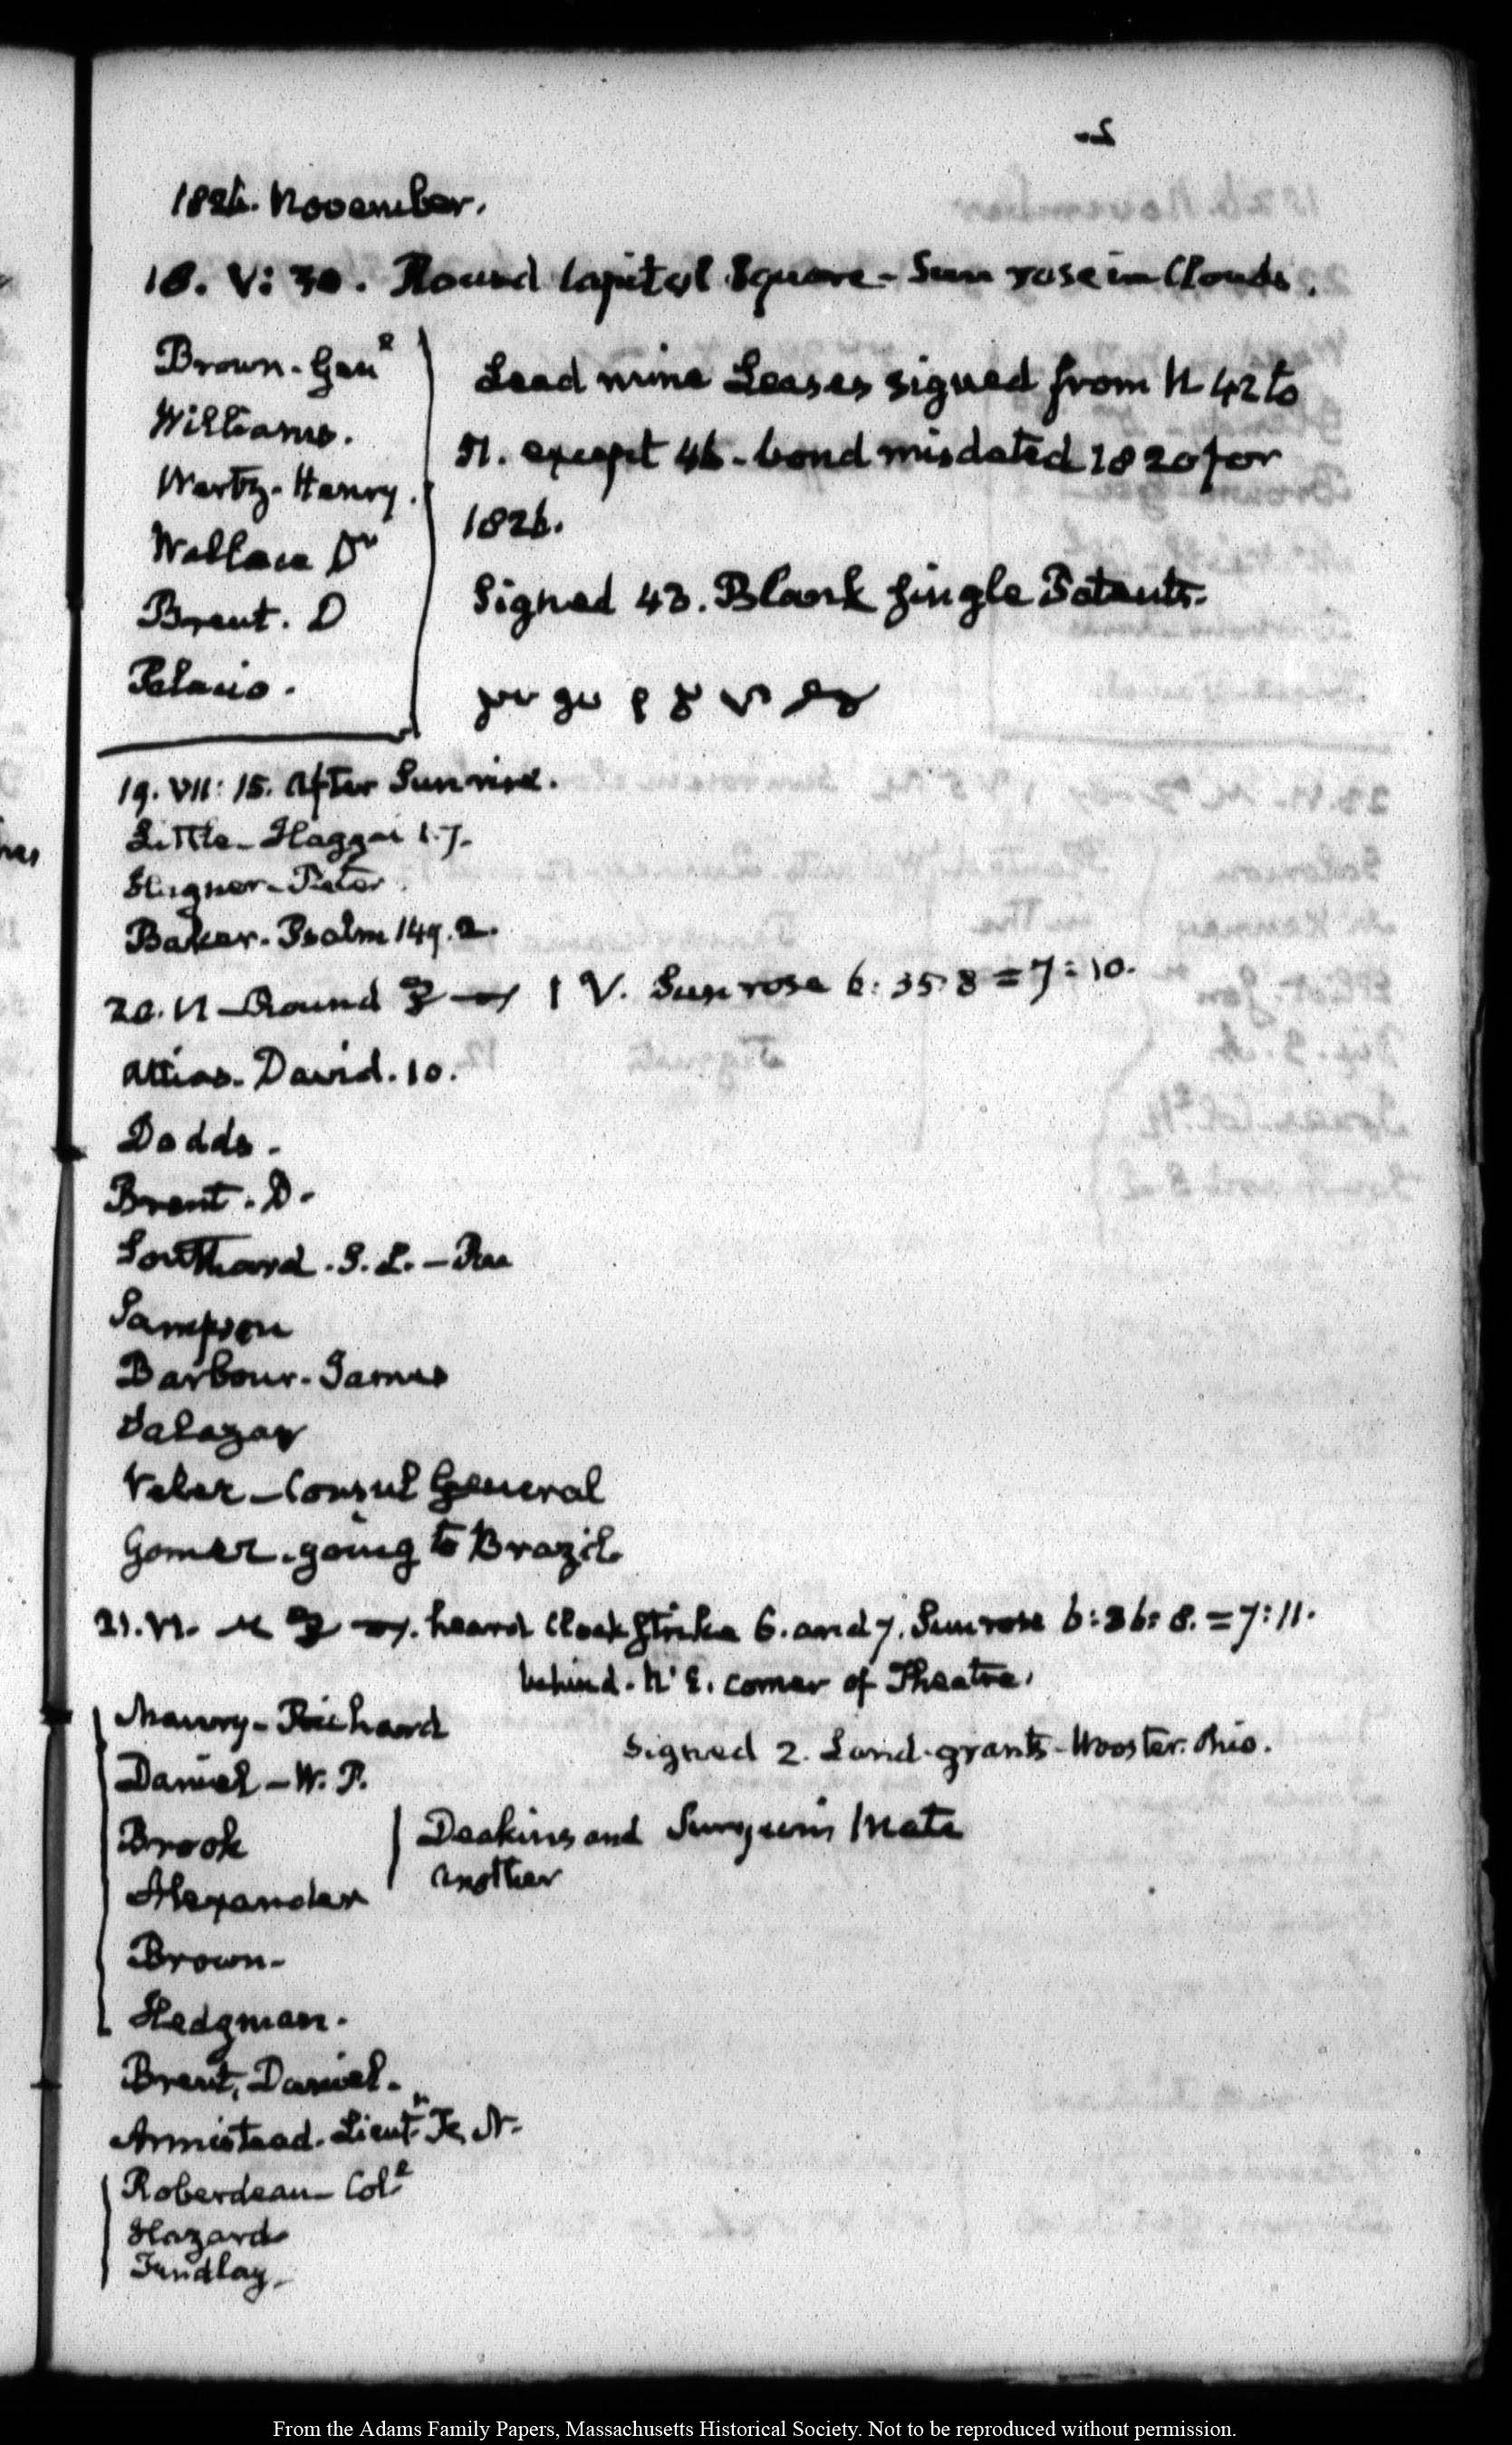 1826. November.
18. V: 30. Round Capitol Square - Sun rose in Clouds.
Brown - Genl
Williams.
Wertz - Henry.
Wallace Dr
Brent. D
Palacio.
Lead mine Leases signed from N 42 to
51. except 46 - bond misdated 1820 for
1826.
Signed 43. Blank single Patents.
19. VII: 15. After Sunrise.
Little - Haggai 1.7.
Hagner - Peter
Baker - Psalm 149.2.
20. VI - Round V. Sun rose 6: 35: 8 = 7: 10.
Attias - David. 10.
Dodds.
Brent. D.
Southard. S. L. -
Sampson
Barbour - James
Salazar
Velez - Consul General
Gomez. going to Brazil.
21. VI. heard Clock strike 6. and 7. Sun rose 6: 36: 8. = 7: 11.
behind. N. E. corner of Theatre.
Maury - Richard
Signed 2. Land-grants - Wooster. Ohio.
Daniel - W. P.
Brook
Deakins and Surgeon's Mate
Alexander
another
Brown -
Hedgman.
Brent, Daniel.
Armistead. Lieut
Roberdeau - Coll
Hazard
Findlay
From the Adams Family Papers, Massachusetts Historical Society. Not to be reproduced without permission.